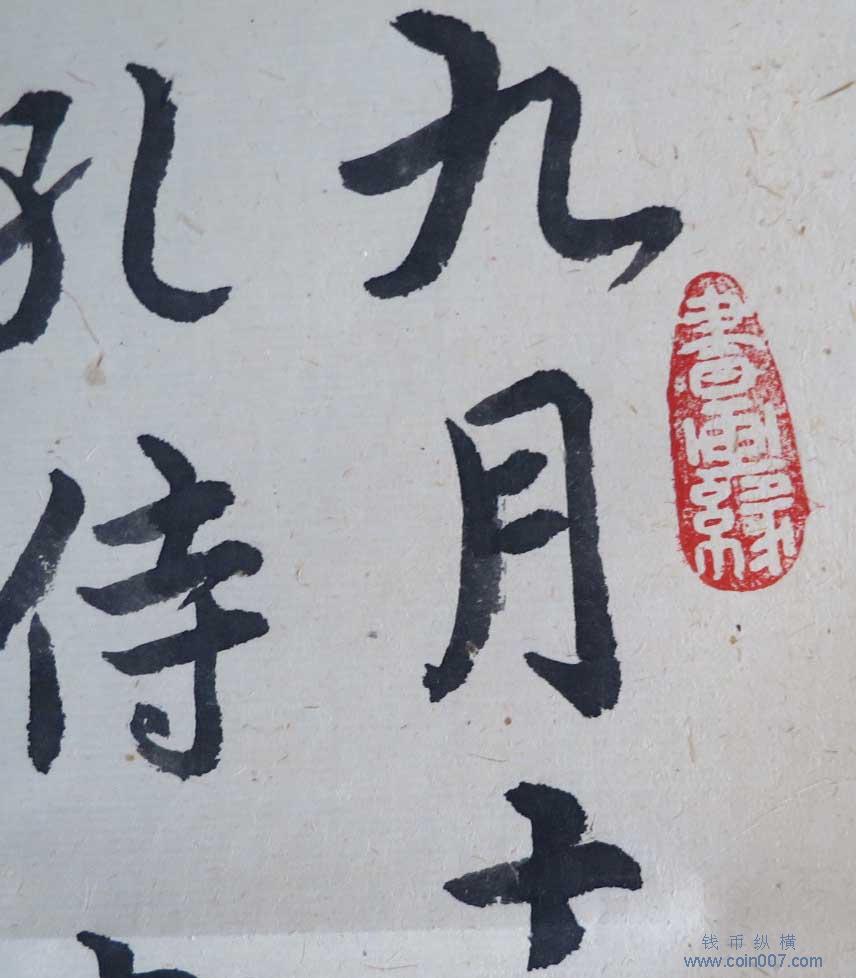 九月十
孔侍
钱币纵横
www.coin007.com